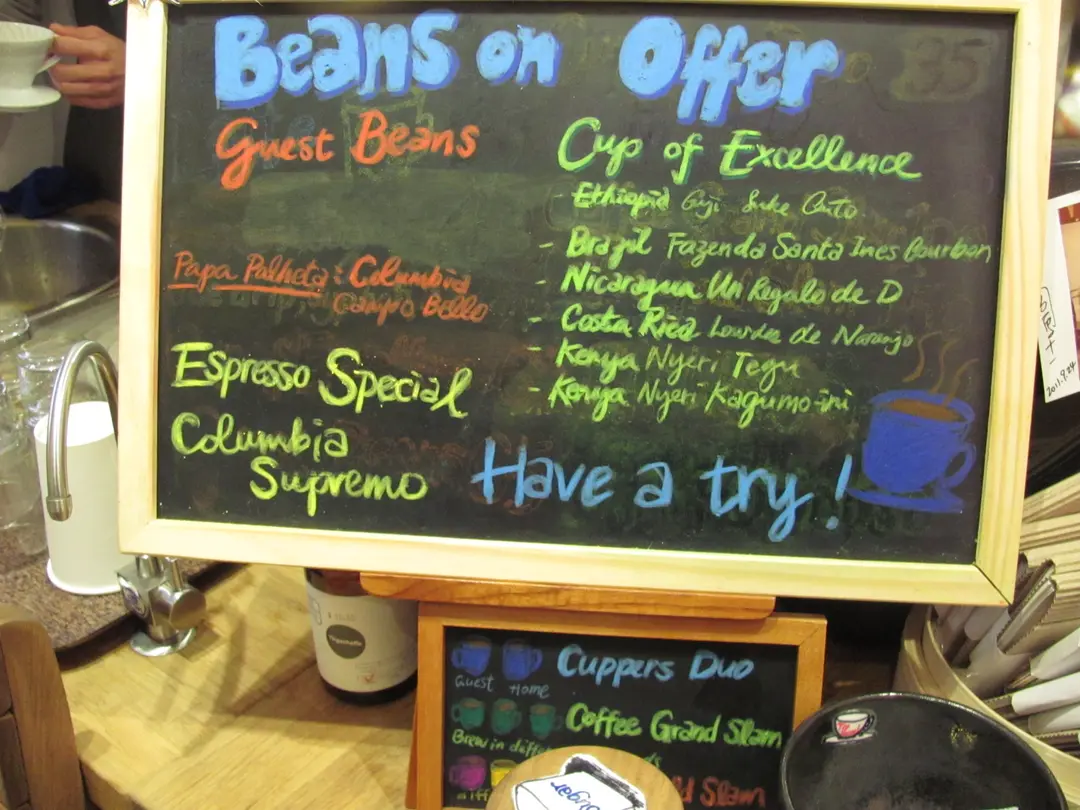 Beans on Offer
Guest Beans
Papa Palheta: Columbia
Campo Bello
Espresso Special
Columbia
Supremo
Cup of Excellence
- Ethiopia Guji Suke Quto
- Brazil Fazenda Santa Ines Bourbon
- Nicaragua Un Regalo de D
- Costa Rica Lourdes de Naranjo
- Kenya Nyeri Tegu
- Kenya Nyeri Kagumo-ini
Have a try!
35
2011.9.24
Cuppers Duo
Guest Home
Coffee Grand Slam
Brew in diff
ld Slam
Sugar